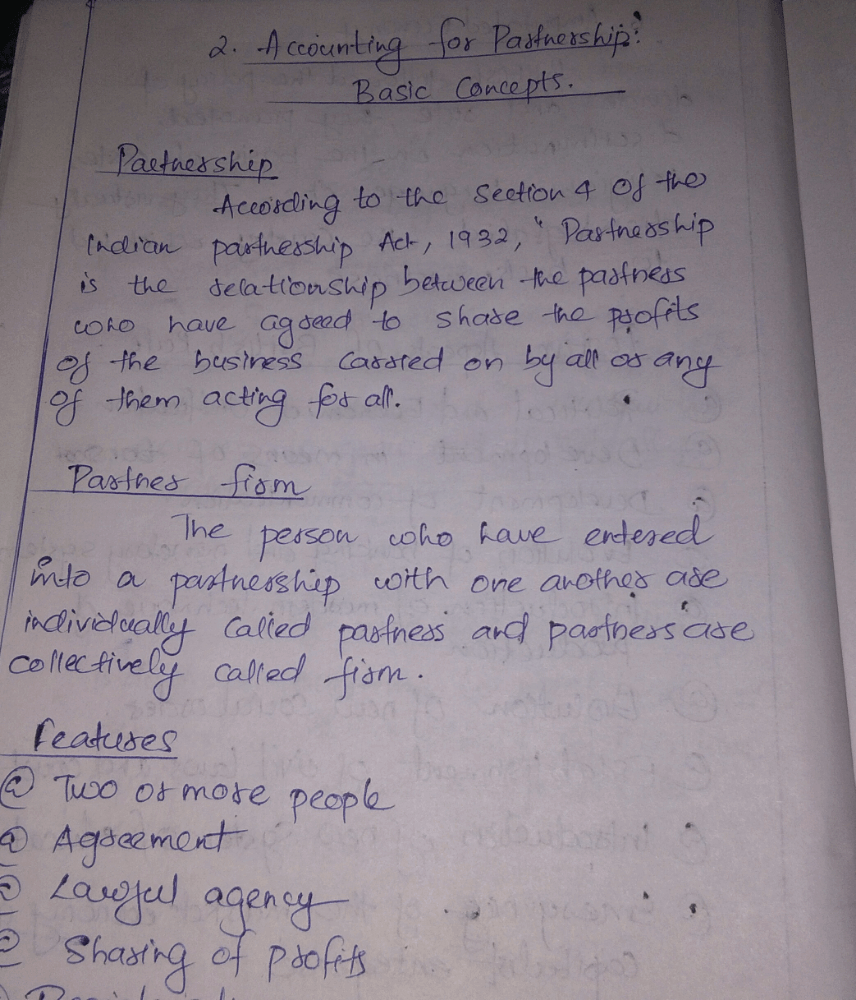 2. Accounting for Partnership:
Basic Concepts.
Partnership
According to the Section 4 of the
Indian partnership Act, 1932, " Partnership
is the relationship between the partners
who have agreed to share the profits
of the business carried on by all or any
of them acting for all.
Partner firm
The person who have entered
into a partnership with one another are
individually called partners and partners are
collectively called firm.
Features
@ Two or more people
@ Agreement
@ Lawful agency
@ Sharing of profits